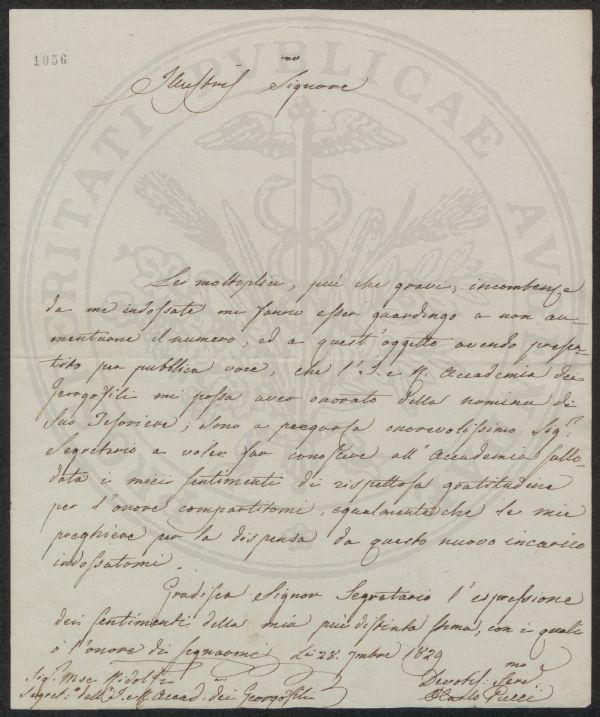 1056
Illustris.mo Signore
Le moltiplici, più che gravi, incombenze
da me indossate mi fanno esser guardingo a non au-
mentarne il numero, ed a quest'oggetto avendo presen-
tito per pubblica voce, che l'I. e R. Accademia dei
Georgofili mi possa aver onorato della nomina di
Suo Tesoriere; sono a pregarla onorevolissimo Sig.r
Segretario a voler far conoscere all'Accademia sullo-
data i miei sentimenti di rispettosa gratitudine
per l'onore compartitomi, egualmente che le mie
preghiere per la dispensa da questo nuovo incarico
indossatomi.
Gradisca Signor Segretario l'espressione
dei sentimenti della mia più distinta stima, con i quali
ò l'onore di segnarmi Li 28. 7mbre 1829
Sig.r Mse Ridolfi
Segret.o dell'I. e R. Accad. dei Georgofili
Devotis.mo Serv.e
Carlo Pucci
PROSPERITATI PUBLICAE AUGENDAE